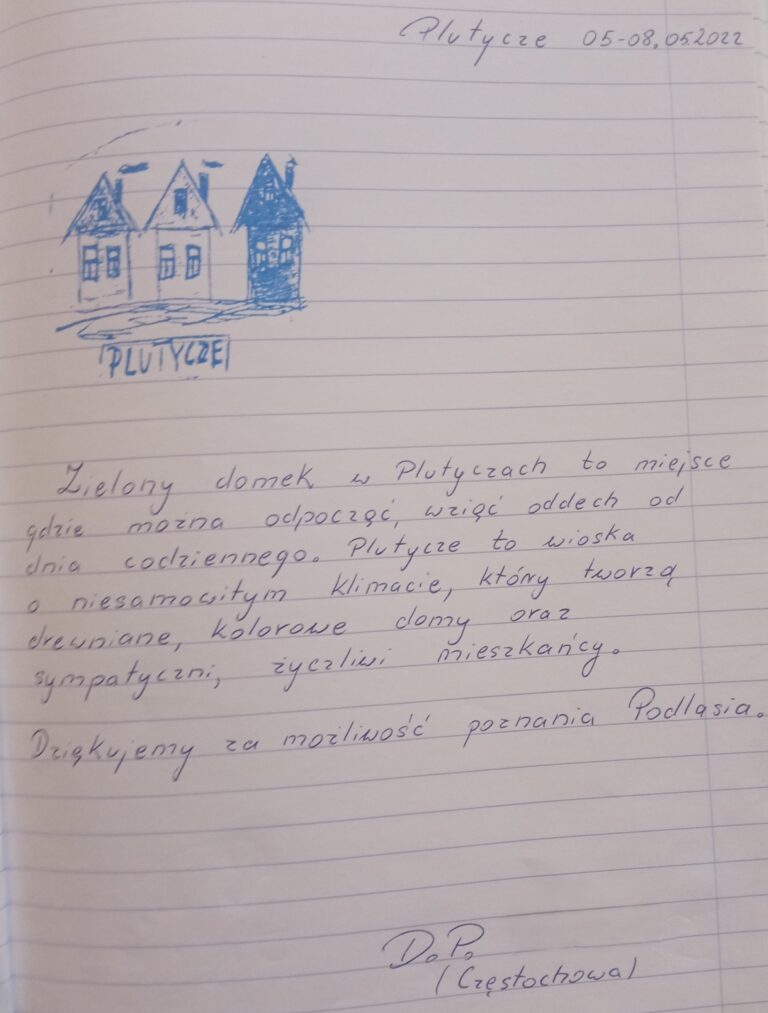 Plutycze 05-08.05.2022
PLUTYCZE
Zielony domek w Plutyczach to miejsce
gdzie można odpocząć, wziąć oddech od
dnia codziennego. Plutycze to wioska
o niesamowitym klimacie, który tworzą
drewniane, kolorowe domy oraz
sympatyczni, życzliwi mieszkańcy.
Dziękujemy za możliwość poznania Podlasia.
D.P.
(Częstochowa)